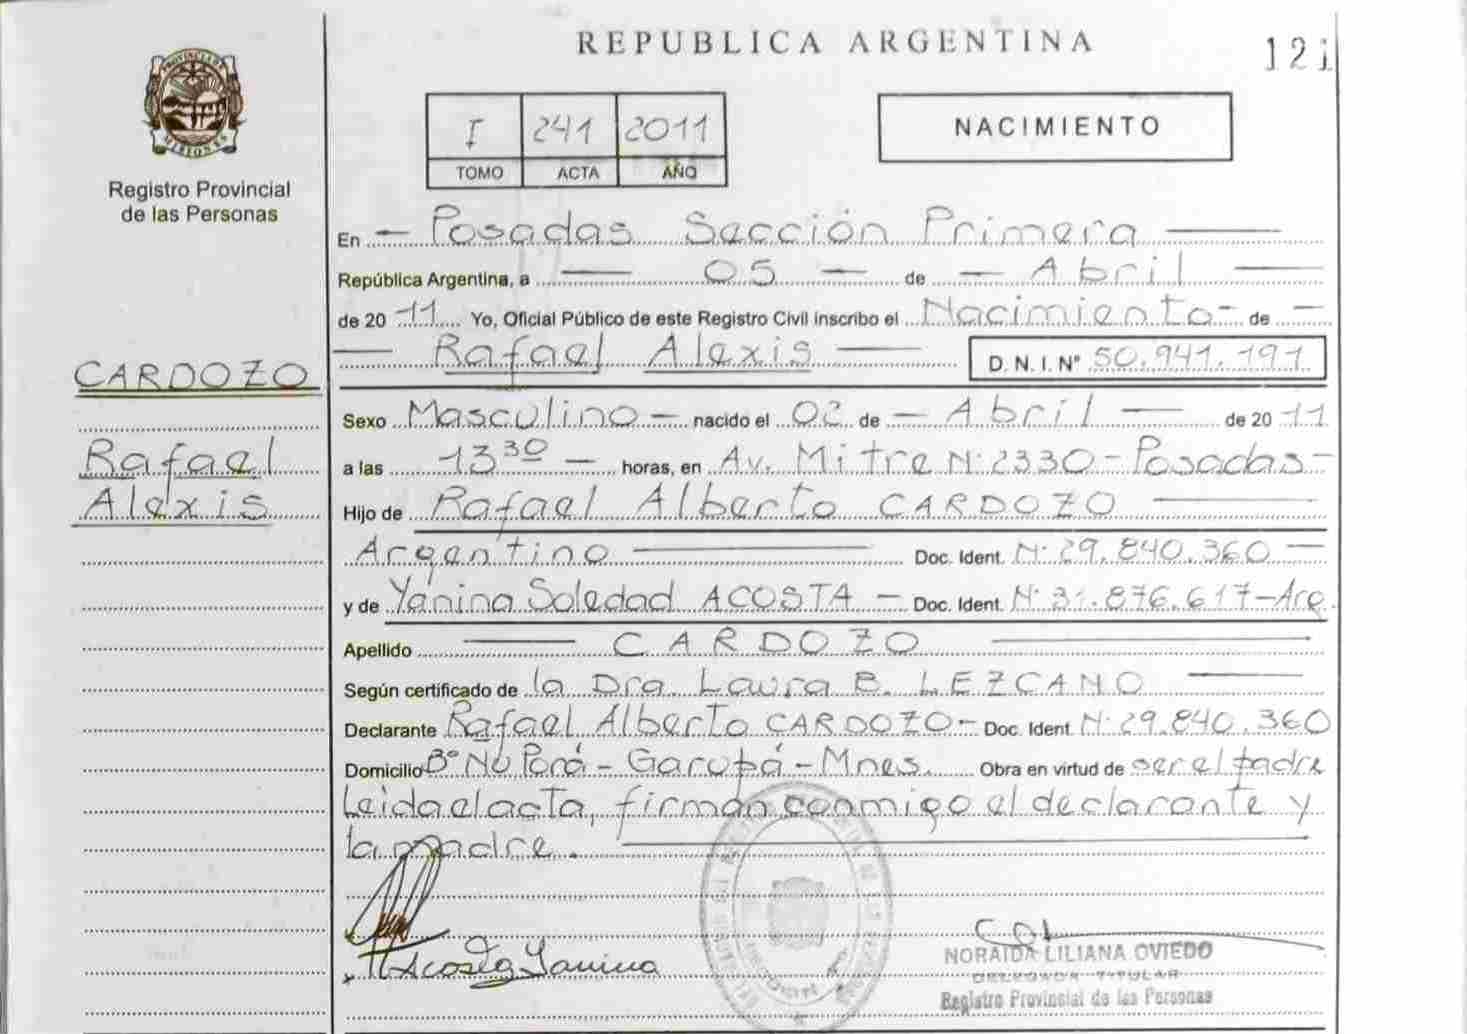 REPUBLICA ARGENTINA
121
PROVINCIA DE
MISIONES
Registro Provincial
de las Personas
I 241 2011
TOMO ACTA AÑO
NACIMIENTO
En Posadas Sección Primera
República Argentina, a 05 de Abril
de 2011 Yo, Oficial Público de este Registro Civil inscribo el Nacimiento de
Rafael Alexis D.N.I.Nº 50.941.191
CARDOZO
Rafael
Alexis
Sexo Masculino nacido el 02 de Abril de 2011
a las 13 30 horas, en Av. Mitre Nº 2330-Posadas-
Hijo de Rafael Alberto CARDOZO
Argentino Doc. Ident. Nº 29.840.360
y de Yanina Soledad ACOSTA - Doc. Ident. Nº 31.876.617-Arg.
Apellido CARDOZO
Según certificado de la Dra. Laura B. LEZCANO
Declarante Rafael Alberto CARDOZO- Doc. Ident. Nº 29.840.360
Domicilio Bº Ñu Porá - Garupá - Mnes. Obra en virtud de ser el padre
Leida el acta, firman conmigo el declarante y
la madre.
Acosta Yanina
NORAIDA LILIANA OVIEDO
DELEGADA TITULAR
Registro Provincial de las Personas